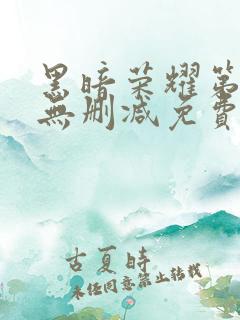 黑暗荣耀第
無刪减免費
古夏時
未经同意禁止转载